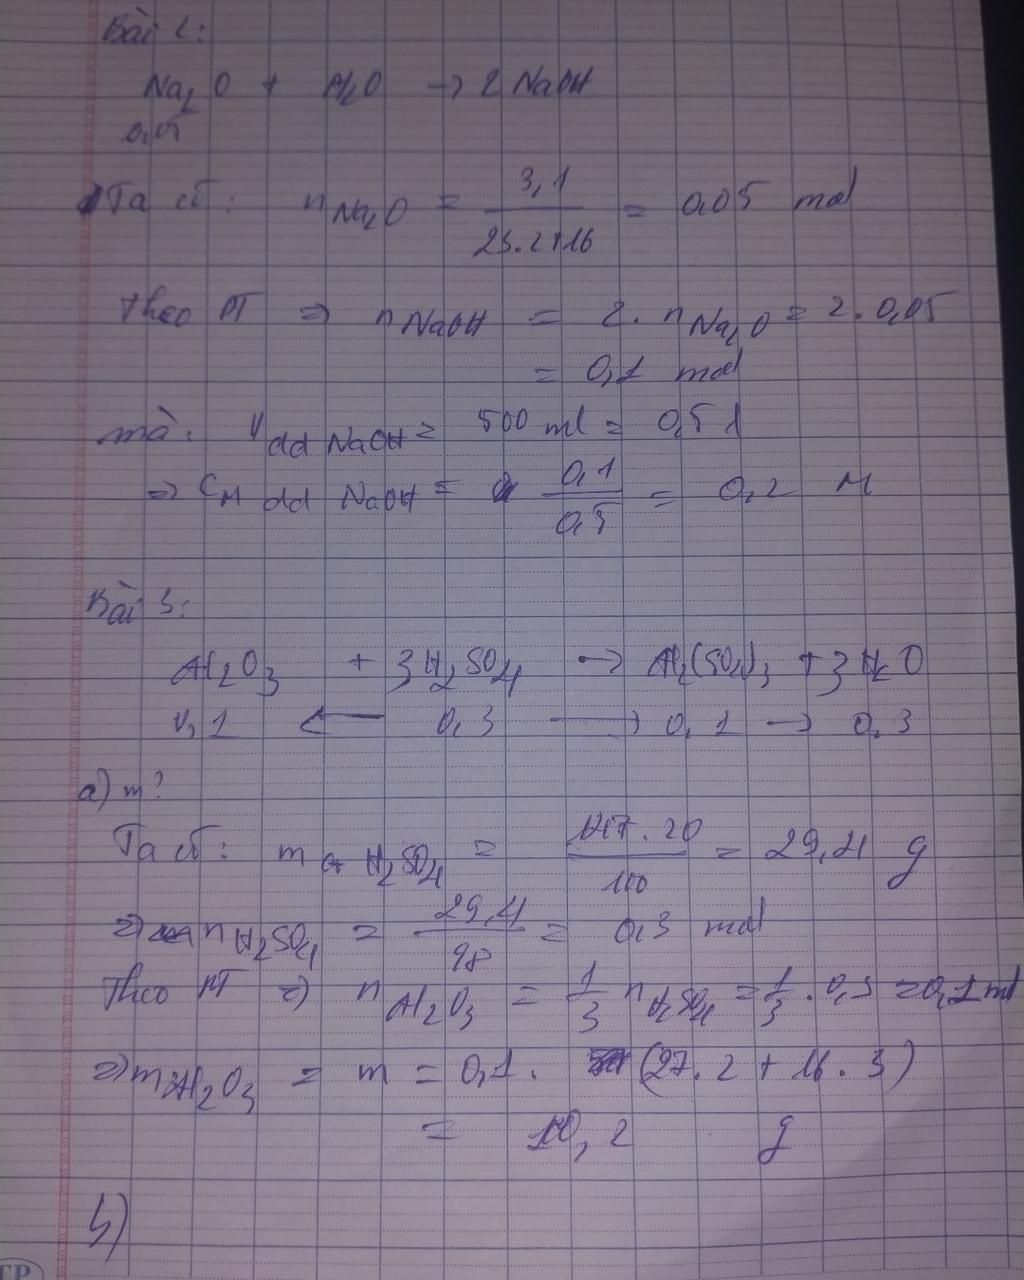 Bài 2:
Na₂O + H₂O → 2 NaOH
0,05
Ta có: n Na₂O = 3,1 / 23.2+16 = 0,05 mol
Theo PT ⇒ n NaOH = 2. n Na₂O = 2.0,05
= 0,1 mol
mà: V dd NaOH = 500 ml = 0,5 l
⇒ CM dd NaOH = 0,1 / 0,5 = 0,2 M
Bài 3:
Al₂O₃ + 3H₂SO₄ → Al₂(SO₄)₃ + 3H₂O
0,1 ← 0,3 → 0,1 → 0,3
a) m?
Ta có: m H₂SO₄ = 147.20 / 100 = 29,4 g
⇒ n H₂SO₄ = 29,4 / 98 = 0,3 mol
Theo PT ⇒ n Al₂O₃ = 1/3 n H₂SO₄ = 1/3 . 0,3 = 0,1 mol
⇒ m Al₂O₃ = m = 0,1. (27.2 + 16.3)
= 10,2 g
b)